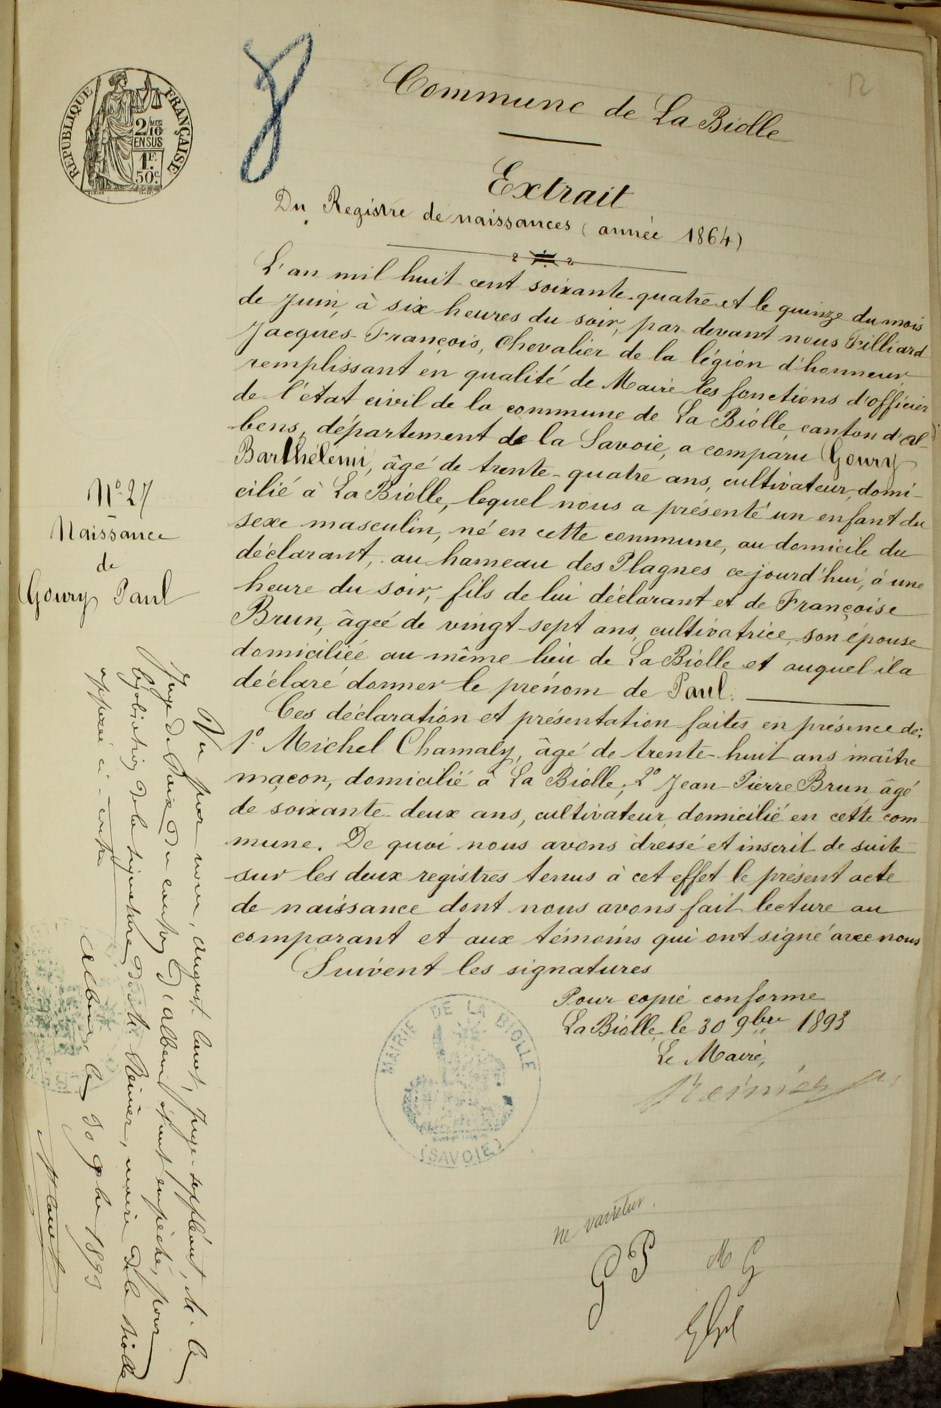 12
Commune de La Biolle
RÉPUBLIQUE FRANÇAISE
2/10
EN SUS
1F.
50c.
8
Extrait
Du Registre de naissances (année 1864)
L'an mil huit cent soixante-quatre et le quinze du mois
de Juin, à six heures du soir, par devant nous Filliard
Jacques-François, Chevalier de la légion d'honneur
remplissant en qualité de Maire les fonctions d'officier
de l'état civil de la commune de La Biolle, canton d'Al-
bens, département de la Savoie, a comparu Goury
Barthélemi, âgé de trente-quatre ans, cultivateur, domi-
cilié à La Biolle, lequel nous a présenté un enfant du
sexe masculin, né en cette commune, au domicile du
déclarant, au hameau des Plagnes ce jourd'hui, à une
heure du soir, fils de lui déclarant et de Françoise
Brun, âgée de vingt-sept ans, cultivatrice, son épouse
domiciliée au même lieu de La Biolle et auquel il a
déclaré donner le prénom de Paul.
Ces déclaration et présentation faites en présence de:
1° Michel Chamaly, âgé de trente-huit ans maître
maçon, domicilié à La Biolle; 2° Jean-Pierre Brun âgé
de soixante-deux ans, cultivateur, domicilié en cette com-
mune. De quoi nous avons dressé et inscrit de suite
sur les deux registres tenus à cet effet le présent acte
de naissance dont nous avons fait lecture au
comparant et aux témoins qui ont signé avec nous
Suivent les signatures
Pour copie conforme
La Biolle, le 30 9bre 1893
Le Maire,
Reinier
MAIRIE DE LA BIOLLE
(SAVOIE)
N° 27
Naissance
de
Goury Paul
Vu pour nous, August Canot, Juge-suppléant, M. le
Juge de Paix du canton d'Albens étant empêché, pour
législation de la signature de Mr Reinier, maire de la Biolle
apposée ci-contre
Albens, le 30 9bre 1893
ne varietur.
G P
M G